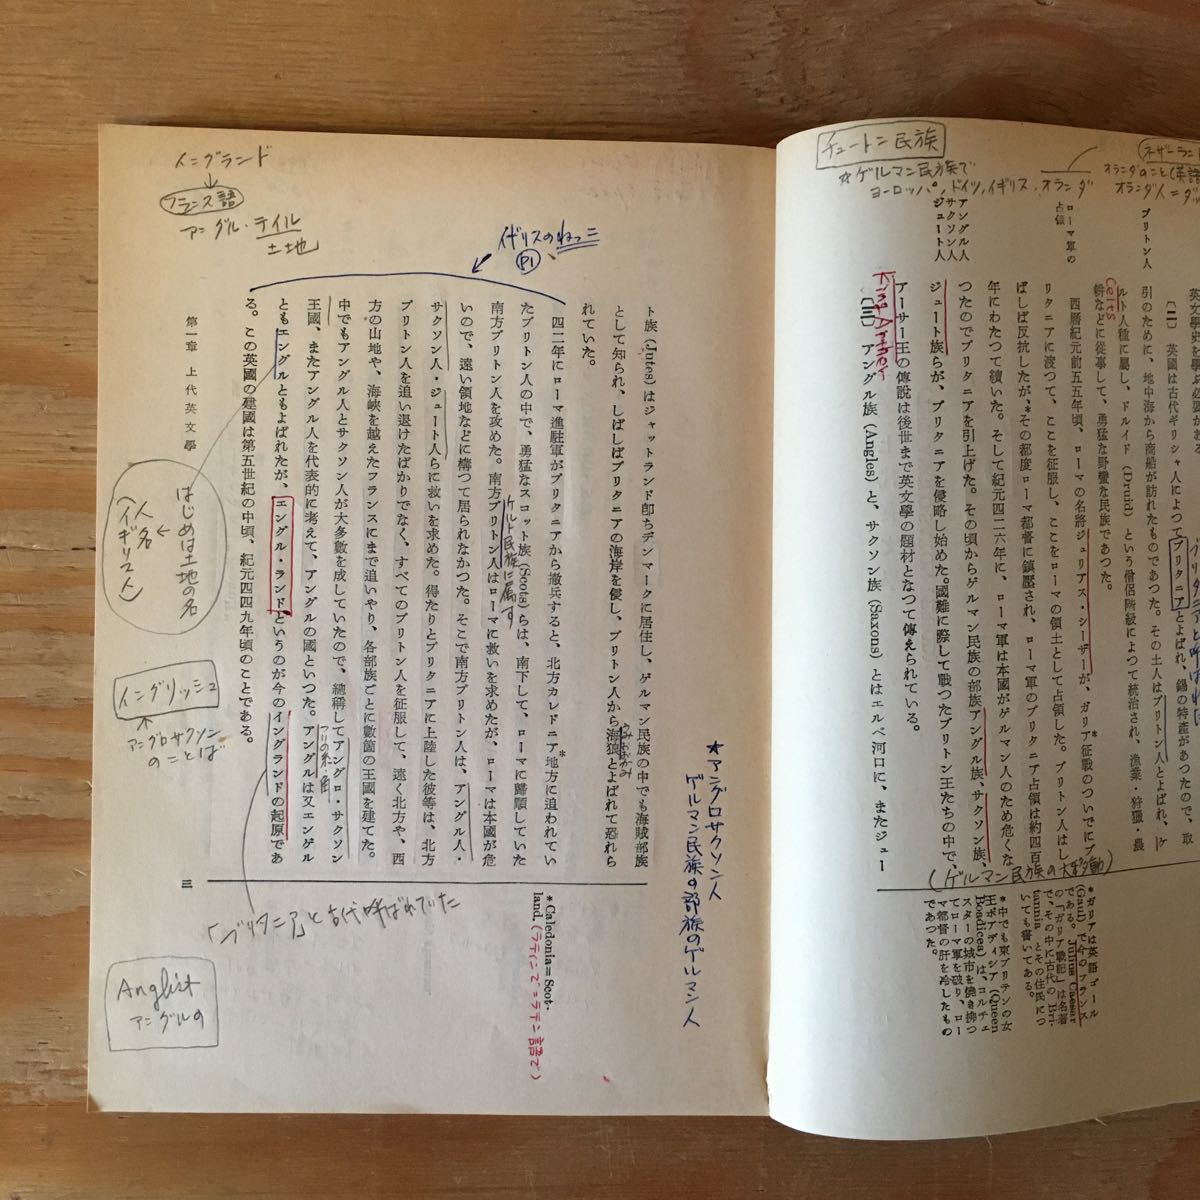 チュートン民族
☆ゲルマン民族で
ヨーロッパ、ドイツ、イギリス、オランダ
ネザーラン
オランダのこと(英語
オランダ人=ダッ
ブリトン人
ローマ軍の
占領
アングル人
サクソン人
ジュート人
〔二〕 英國は古代ギリシャ人によつてブリタニアとよばれ、錫の特產があつたので、取
引のために、地中海から商船が訪れたものであつた。その土人はブリトン人とよばれ、ケ
ルト人種に屬し、ドルイド (Druid) という僧侶階級によつて統治され、漁業・狩獵・農
耕などに從事して、勇猛な野蠻な民族であつた。
Celts
西曆紀元前五五年頃、ローマの名將ジュリアス・シーザーが、ガリア*征戰のついでにブ
リタニアに渡つて、ここを征服し、ここをローマの領土として占領した。ブリトン人はし
ばしば反抗したが、*その都度ローマ都督に鎭壓され、ローマ軍のブリタニア占領は約四百
年にわたつて續いた。そして紀元四二六年に、ローマ軍は本國がゲルマン人のため危くな
つたのでブリタニアを引上げた。その頃からゲルマン民族の部族アングル族、サクソン族、
ジュート族らが、ブリタニアを侵略し始めた。國難に際して戰つたブリトン王たちの中で、
アーサー王の傳說は後世まで英文學の題材となつて傳えられている。
King Arther
〔三〕 アングル族 (Angles) と、サクソン族 (Saxons) とはエルベ河口に、またジュー
(ゲルマン民族の大移動)
*ガリアは英語ゴール
(Gaul) で今のフランス
である。Julius Caesar
の「ガリア戰記」は名著
で、その中に古代の Bri-
tannia とその住民につ
いても書いてある。
*中でも東ブリテンの女
王ボアディシア (Queen
Boadicea) は、コルチェ
スターの城市を燒き拂つ
てローマ軍を破り、ロー
マ都督の肝を冷したもの
であつた。
★アングロサクソン人
ゲルマン民族の部族のゲルマン人
ト族 (Jutes) はジャットランド卽ちデンマークに居住し、ゲルマン民族の中でも海賊部族
として知られ、しばしばブリタニアの海岸を侵し、ブリトン人から海狼とよばれて恐れら
れていた。
四二年にローマ進駐軍がブリタニアから撤兵すると、北方カレドニア*地方に追われてい
たブリトン人の中で、勇猛なスコット族 (Scots) らは、南下して、ローマに歸順していた
ケルト民族に属す
南方ブリトン人を攻めた。南方ブリトン人はローマに救いを求めたが、ローマは本國が危
いので、遠い領地などに構つて居られなかつた。そこで南方ブリトン人は、アングル人・
サクソン人・ジュート人らに救いを求めた。得たりとブリタニアに上陸した彼等は、北方
ブリトン人を追い退けたばかりでなく、すべてのブリトン人を征服して、遠く北方や、西
方の山地や、海峽を越えたフランスにまで追いやり、各部族ごとに數箇の王國を建てた。
中でもアングル人とサクソン人が大多數を成していたので、總稱してアングロ・サクソン
王國、またアングル人を代表的に考えて、アングルの國といつた。アングルは又エンゲル
ともエングルともよばれたが、エングル・ランドというのが今のイングランドの起原であ
る。この英國の建國は第五世紀の中頃、紀元四四九年頃のことである。
イギリスのねっこ
P1
*Caledonia=Scot-
land.
(ラティンで=ラテン語で)
第一章 上代英文學
三
イングランド
フランス語
アングル・テイル
土地
はじめは土地の名
人名
(イギリス人)
イングリッシュ
アングロサクソン
のことば
「ブリタニア」と古代呼ばれていた
Anglist
アングルの